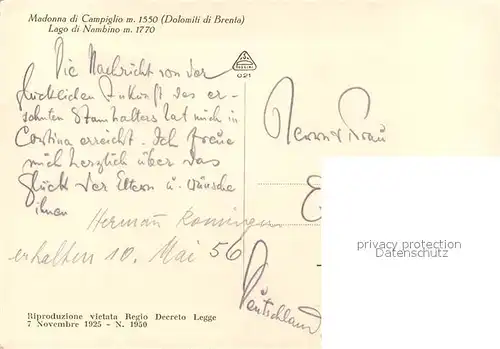 Madonna di Campiglio m. 1550 (Dolomiti di Brenta)
Lago di Nambino m. 1770
Die Nachricht von der
glücklichen Ankunft des er-
sehnten Stammhalters hat mich in
Cortina erreicht. Ich freue
mich herzlich über das
Glück der Eltern u. wünsche
ihnen
Herman
erhalten 10. Mai 56
021
Herrn & Frau
E
Deutschland
privacy protection
Riproduzione vietata Regio Decreto Legge
7 Novembre 1925 - N. 1950